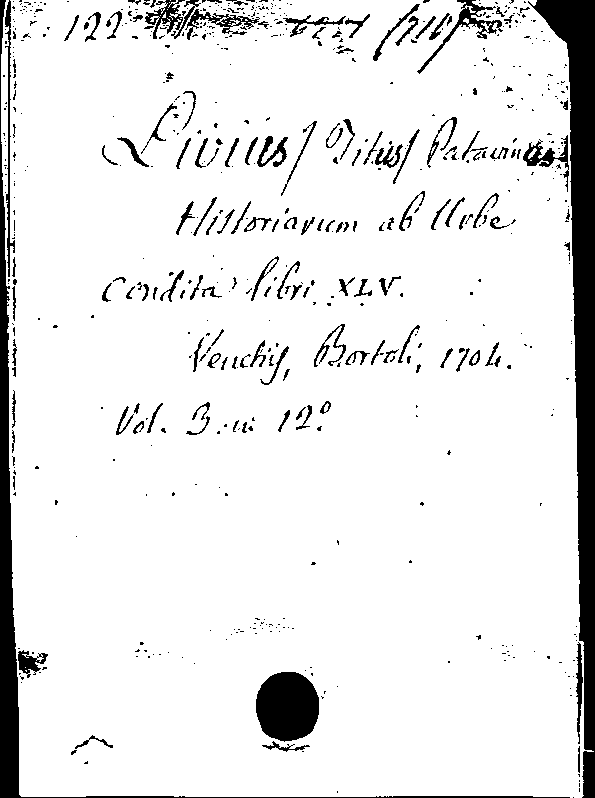 122.
Livius / Titus / Patavinus
Historiarum ab Urbe
condita libri XLV.
Venetijs, Bortoli, 1704.
Vol. 3. in 12º